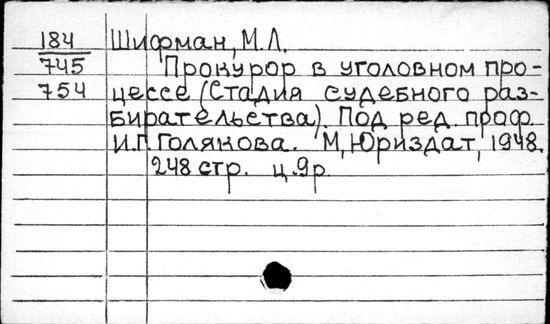 184 Шифман, М.Л.
745 Прокурор в уголовном про-
754 цессе (Стадия судебного раз-
бирательства). Под ред. проф.
И.Г. Голякова. М, Юриздат, 1948.
248 стр. ц. 9р.